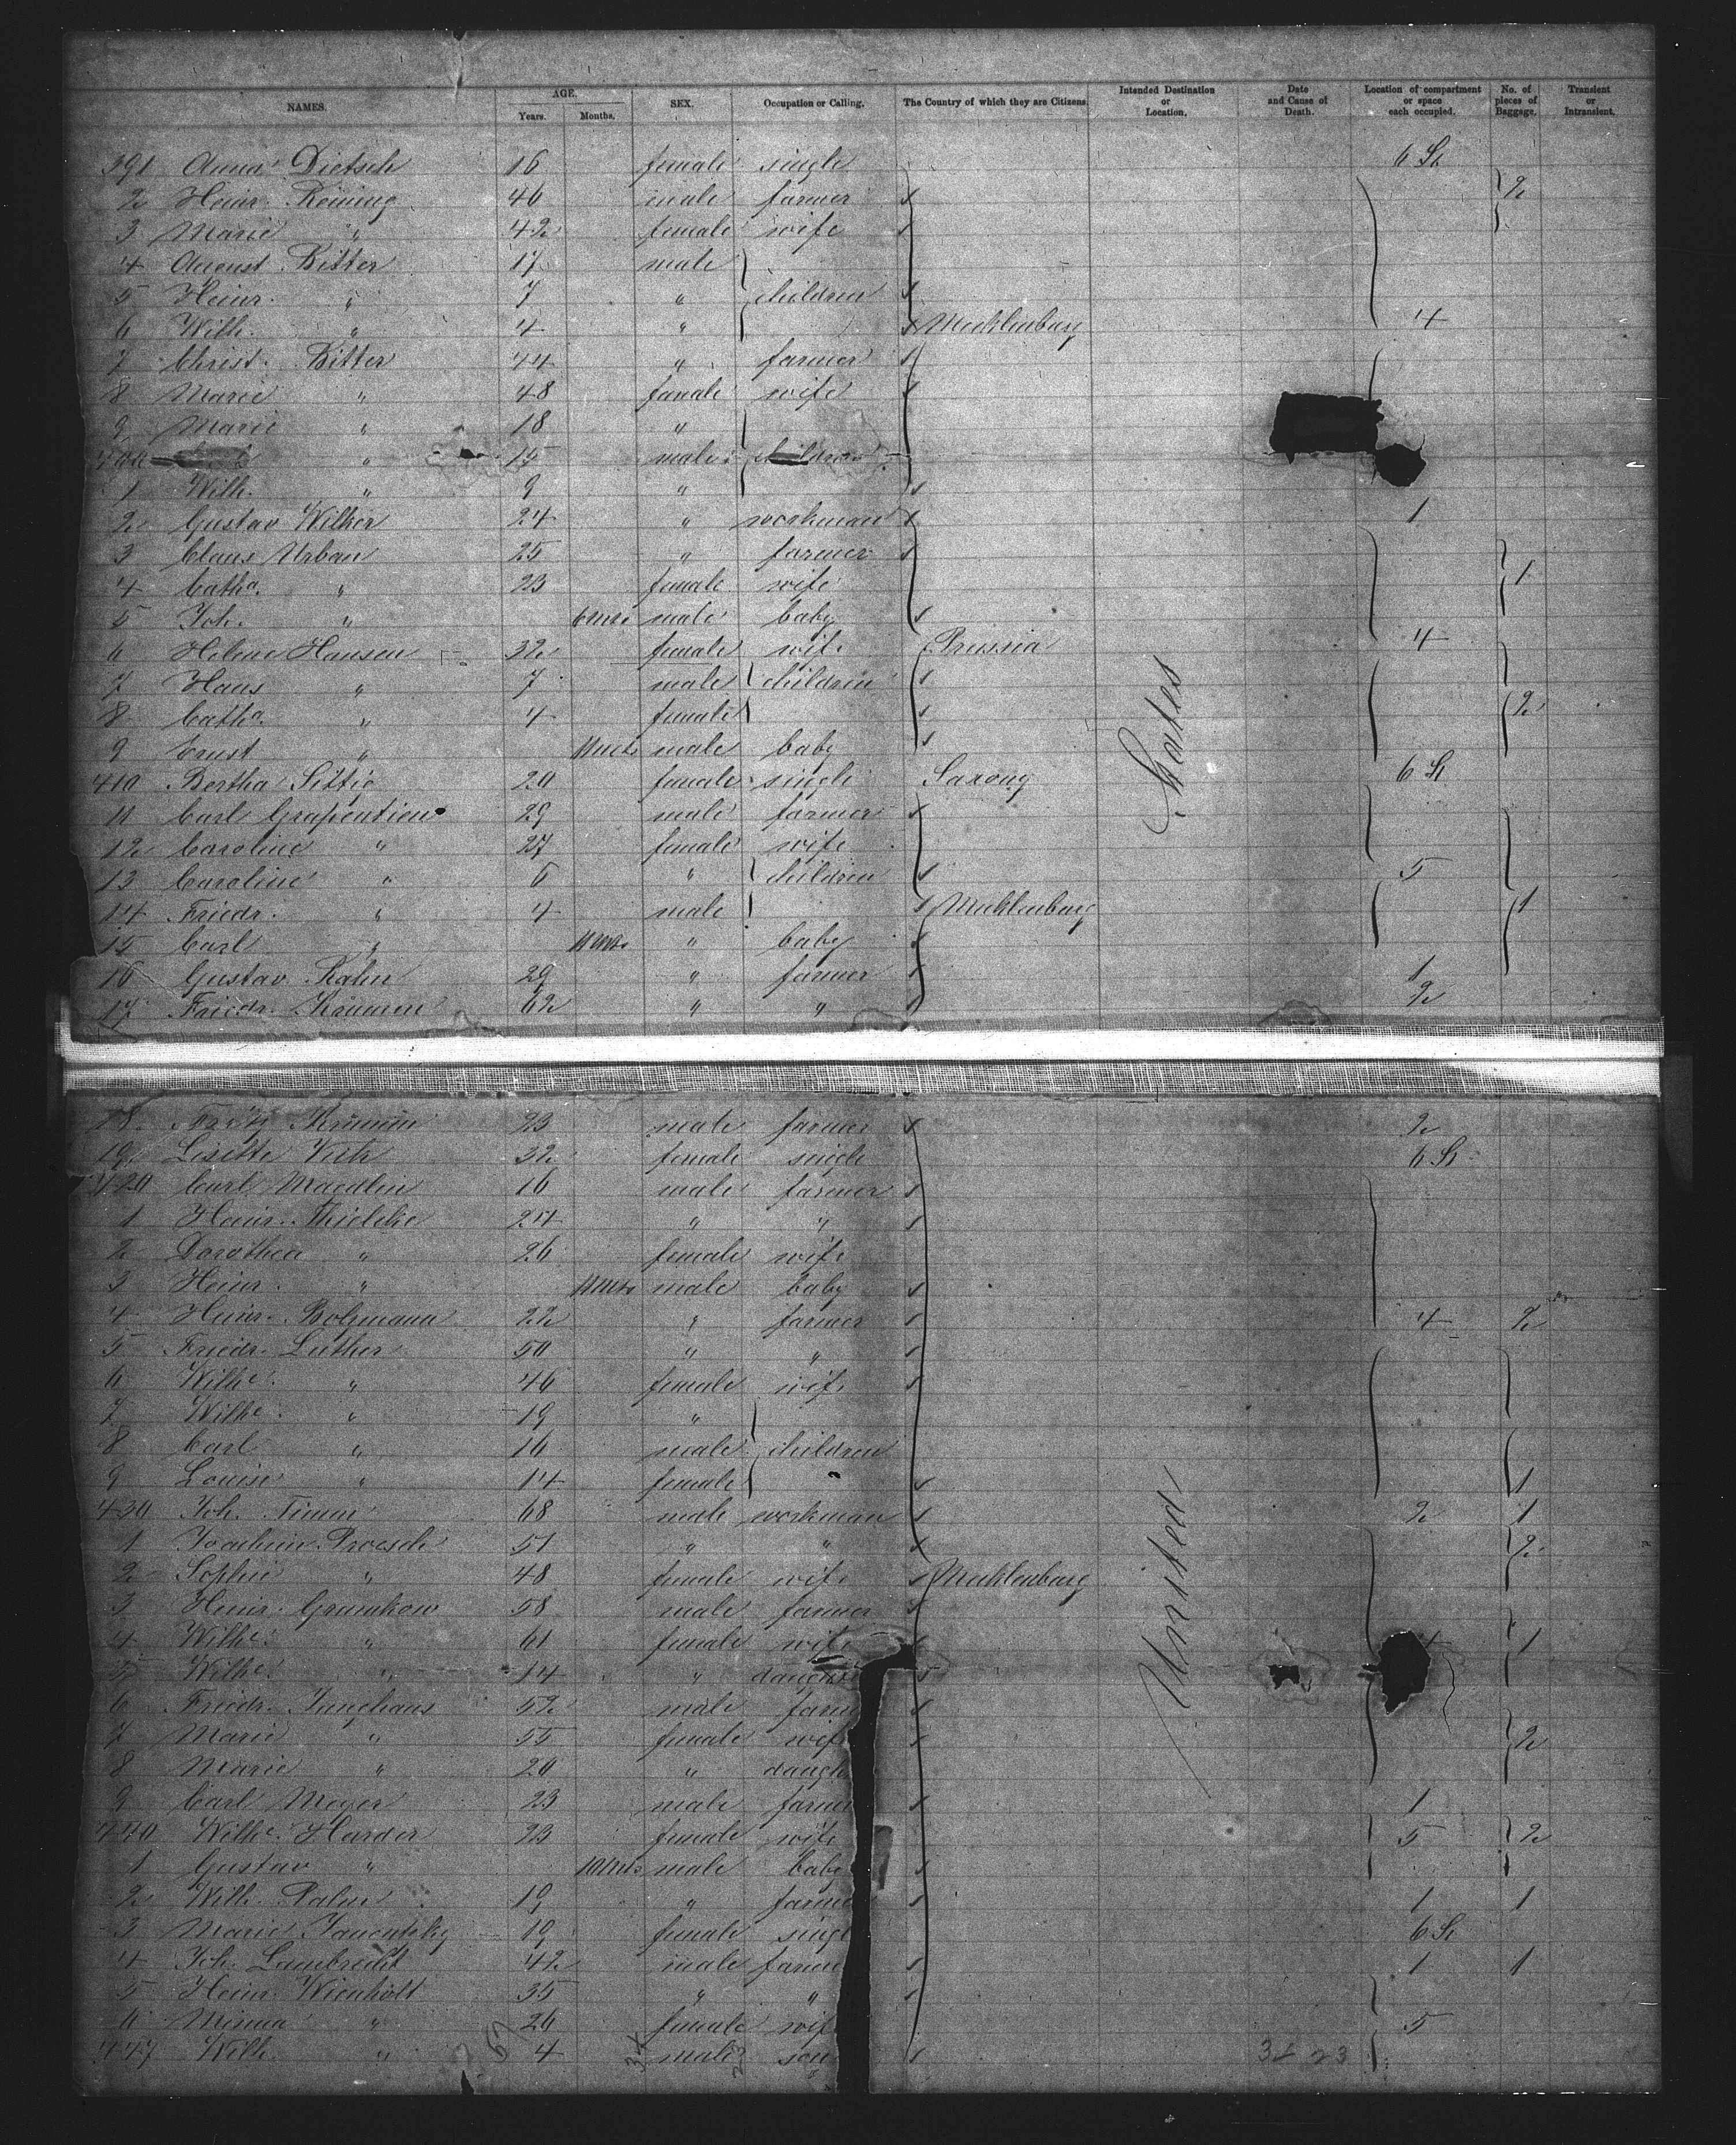 NAMES. AGE. Years. Months. SEX. Occupation or Calling. The Country of which they are Citizens. Intended Destination or Location. Date and Cause of Death. Location of compartment or space each occupied. No. of pieces of Baggage. Transient or Intransient.
391 Anna Dietsch 16 female single 6 St
2 Heinr. Reining 46 male farmer 2
3 Marie " 42 female wife
4 August Ritter 17 male
5 Heinr. " 7 " children
6 Wilh. " 4 " Mecklenburg 4
7 Christ. Ritter 44 " farmer
8 Marie " 48 female wife
9 Marie " 18 "
400 " 15 male children
1 Wilh. " 9 "
2 Gustav Wilker 24 " workman 1
3 Claus Urban 25 " farmer
4 Catha. " 23 female wife 1
5 Joh. " 6 mts male baby
6 Helene Hansen 32 female wife Prussia 4
7 Hans " 7 male children
8 Catha. " 4 female 2
9 Ernst " 11 mts male baby
410 Bertha Sittig 20 female single Saxony 6 St
11 Carl Grapentien 29 male farmer
12 Caroline " 27 female wife
13 Caroline " 6 " children 5
14 Friedr. " 4 male Mecklenburg 1
15 Carl " 11 mts " baby
16 Gustav Rahn 29 " farmer 1
17 Friedr. Krumm 62 " " 2
18 Fritz Krumm 23 male farmer 2
19 Lisette Vick 32 female single 6 St
420 Carl Maedlin 16 male farmer
1 Heinr. Thielcke 24 " "
2 Dorothea " 26 female wife
3 Heinr. " 11 mts male baby
4 Heinr. Bolzmann 22 " farmer 4 2
5 Friedr. Luther 50 " "
6 Wilhe. " 46 female wife
7 Wilhe. " 19 "
8 Carl " 16 male children
9 Louise " 14 female 1
430 Joh. Timm 68 male workman 2 1
1 Joachim Proesch 51 " " 2
2 Sophie " 48 female wife Mecklenburg
3 Heinr. Grumkow 58 male farmer
4 Wilhe. " 61 female wife 1
5 Wilhe. " 14 "
6 Friedr. Junghans 52 male farm
7 Marie " 55 female wife 2
8 Marie " 20 " daugh
9 Carl Meyer 23 male farme 1
440 Wilhe. Harder 23 female wife 5 2
1 Gustav " 10 mts male baby
2 Wilh. Palm 19 " farme 1 1
3 Marie Janentzky 19 female singl 6 St
4 Joh. Lambrecht 42 male farm 1 1
5 Heinr. Wienholt 35 " "
6 Minna " 26 female wif 5
447 Wilh. " 4 male son
United States
34 23
34 23